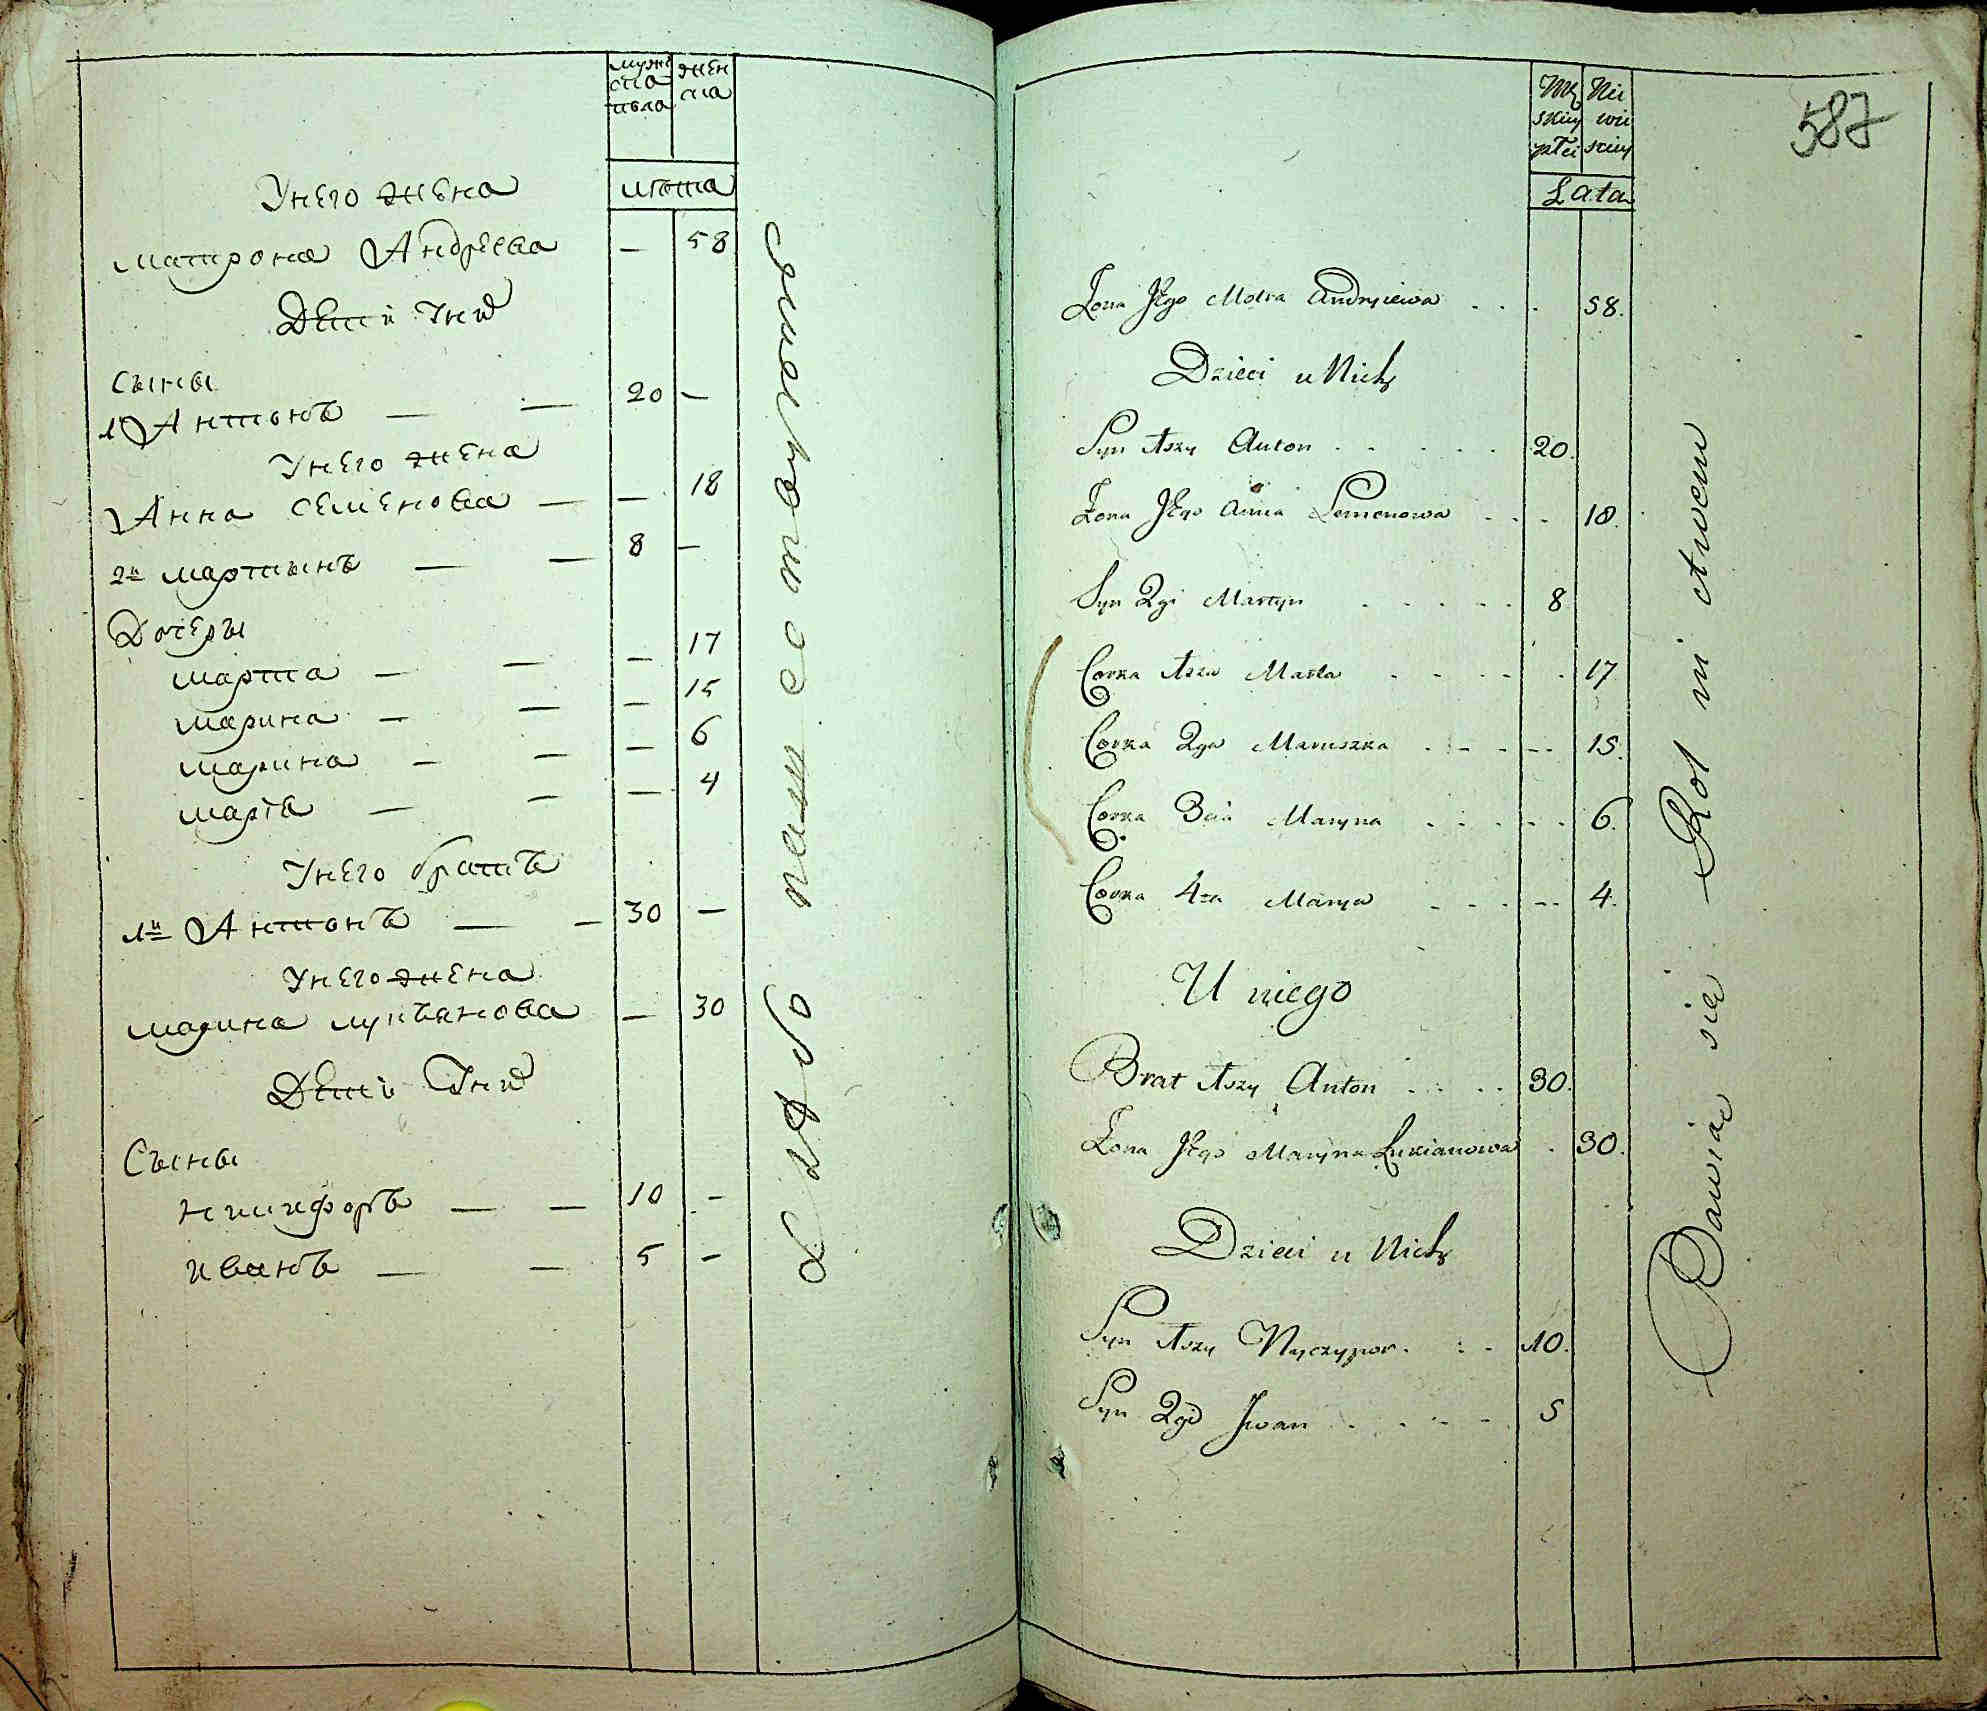 мужеска пола
женска
лѣта
У него жена
Матрона Андрѣева — 58
Дѣти у них
Сыны
1й Антонъ — — 20 —
У него жена
Анна Семенова — — 18
2й Мартынъ — — 8 —
Дочеры
Марта — — — 17
Марина — — — 15
Марина — — — 6
Маря — — — 4
У него братъ
1й Антонъ — — 30 —
У него жена
Марина Лукянова — 30
Дѣти у них
Сыны
Никифоръ — — 10 —
Иванъ — — 5 —
587
Męskiey płci
Niewieskiey
Lata
Żona Jego Motra Andryiewa . . . 58.
Dzieci u Nich
Syn 1szy Anton . . . . . 20.
Żona Jego Anna Semenowa . . . 18.
Syn 2gi Martyn . . . . . 8
Corka 1sza Marta . . . . . 17
Corka 2ga Maruszka . . . . . 15.
Corka 3cia Maryna . . . . . 6.
Corka 4ta Marya . . . . . 4.
U niego
Brat 1szy Anton . . . . 30.
Żona Jego Maryna Lukianowa . 30.
Dzieci u Nich
Syn 1szy Nyczypor . : . 10.
Syn 2gi Jwan . . . . . 5
Bawią się Rol ni ctwem